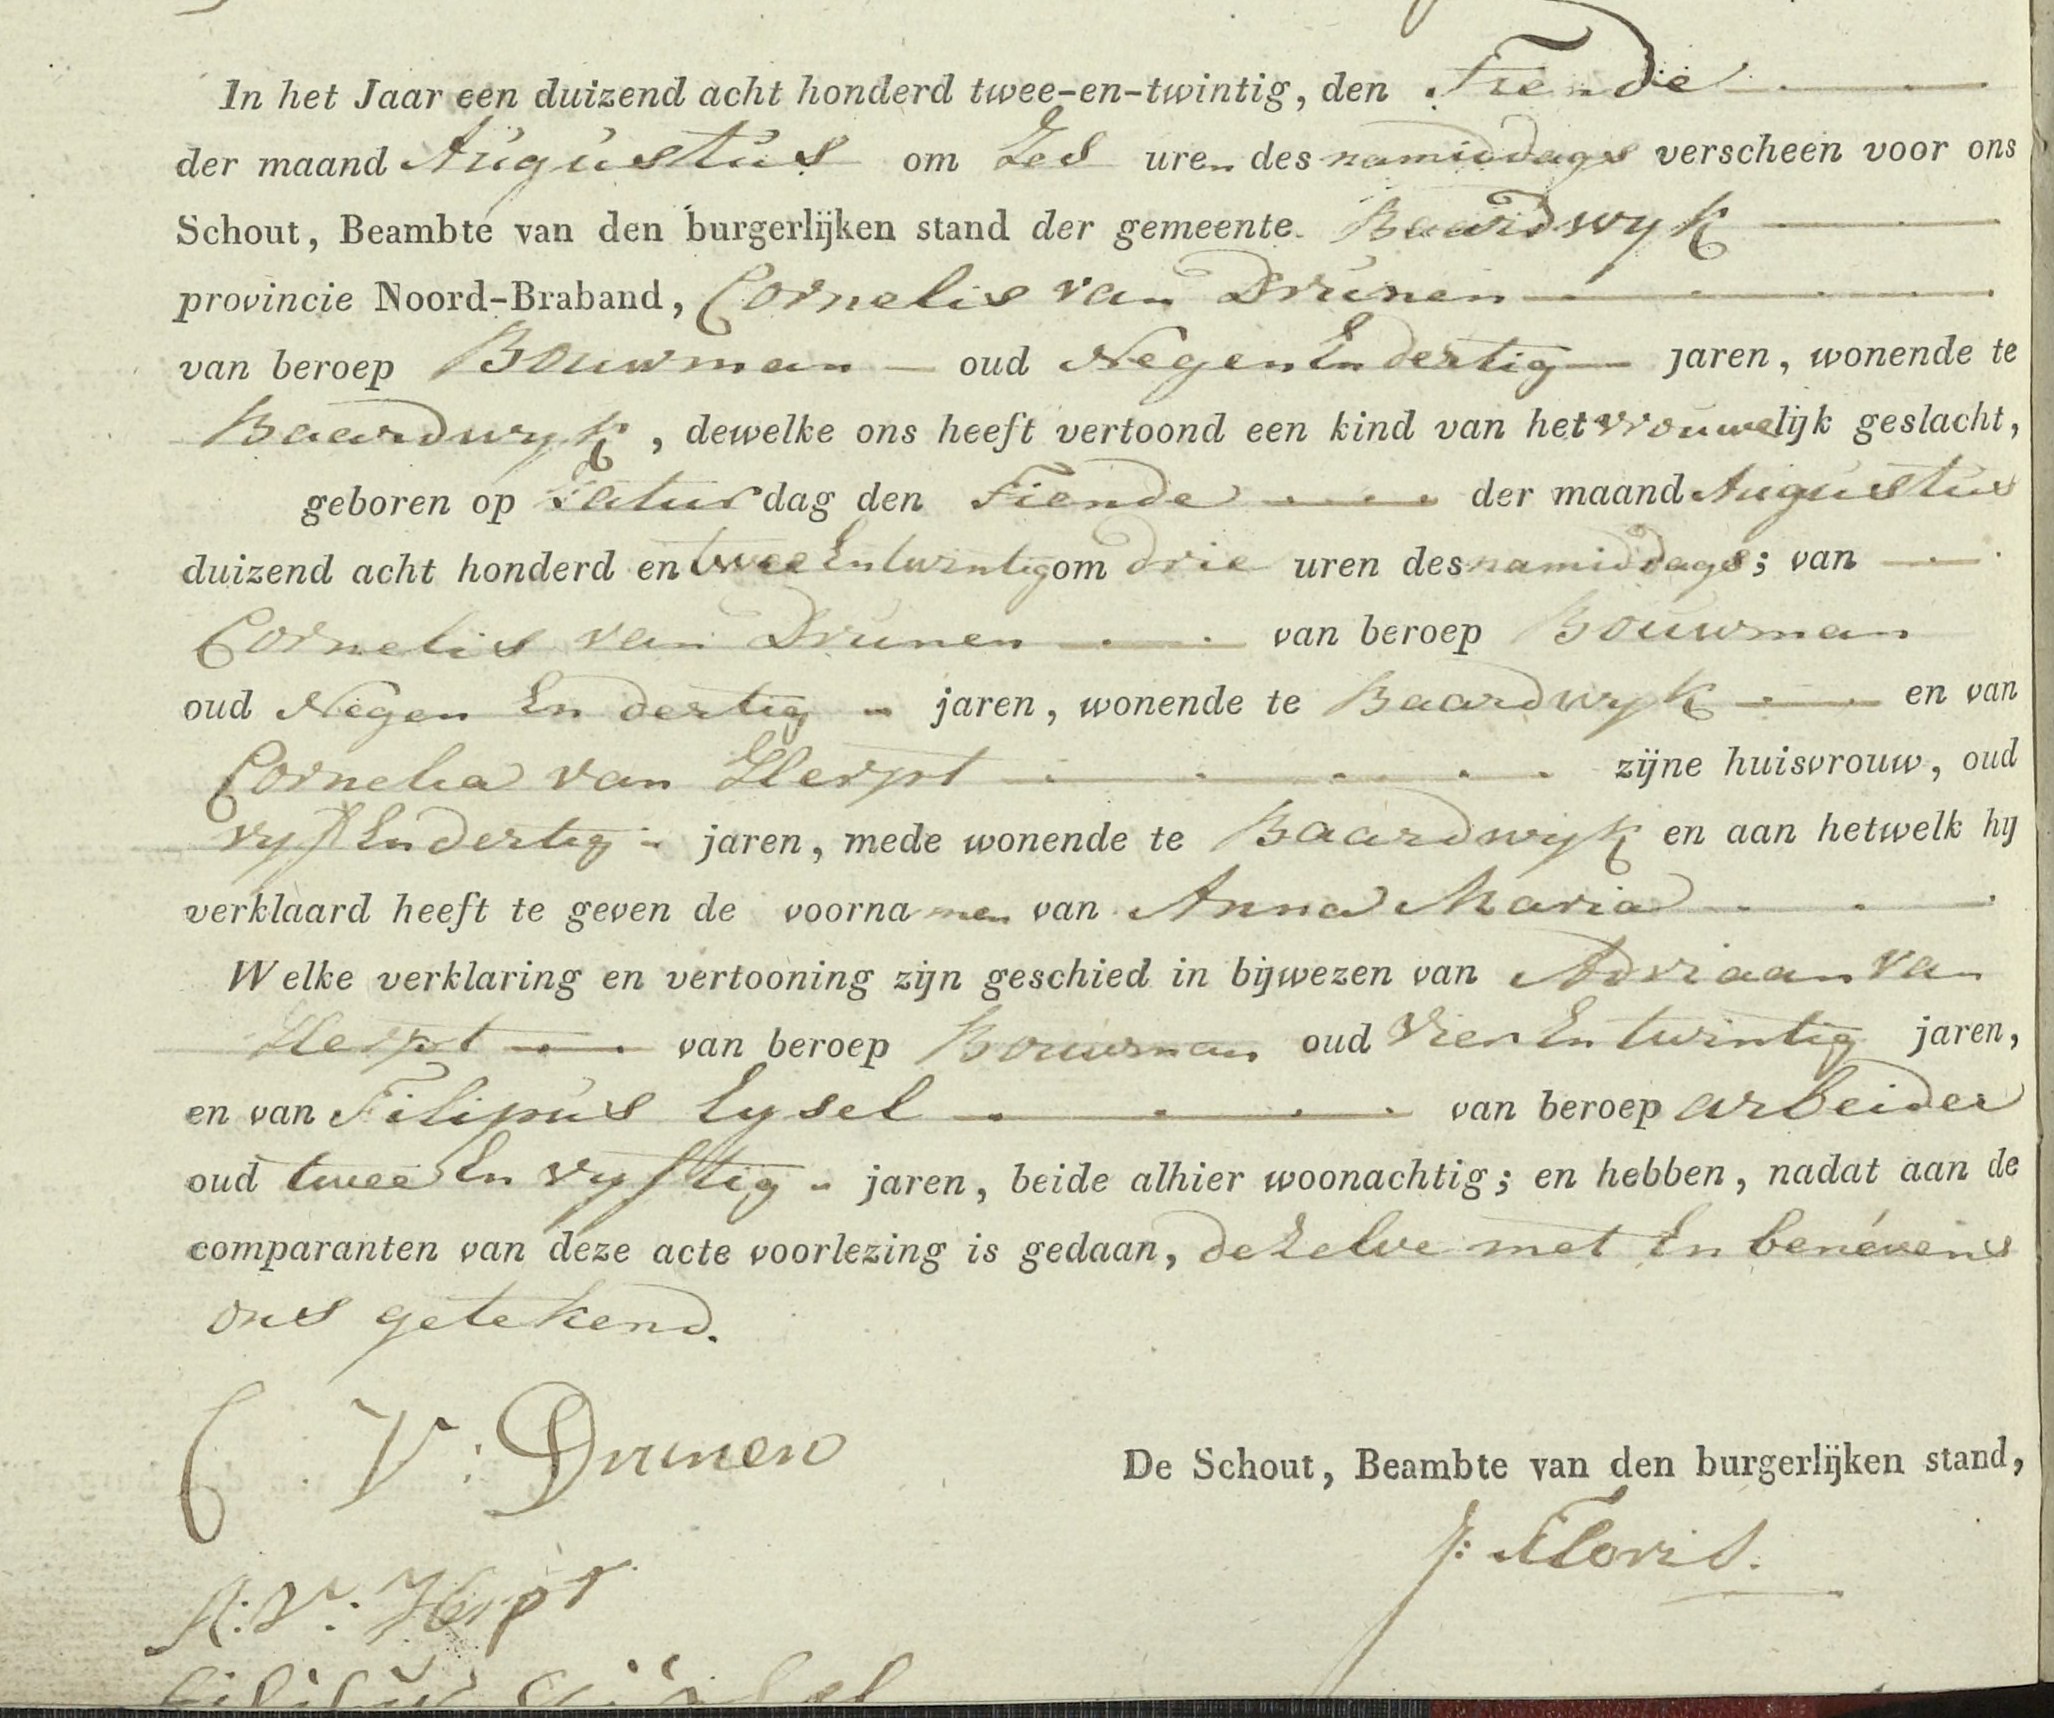 In het Jaar een duizend acht honderd twee-en-twintig, den Tiende
der maand Augustus om Zes uren des namiddags verscheen voor ons
Schout, Beambte van den burgerlijken stand der gemeente Baardwyk
provincie Noord-Braband, Cornelis van Drunen
van beroep Bouwman oud Negen En dertig jaren, wonende te
Baardwyk, dewelke ons heeft vertoond een kind van het vrouwelijk geslacht,
geboren op Zaturdag den Tiende der maand Augustus
duizend acht honderd en twee En twintig om drie uren des namiddags; van
Cornelis van Drunen van beroep Bouwman
oud Negen En dertig jaren, wonende te Baardwyk en van
Cornelia van Herpt zijne huisvrouw, oud
vyf En dertig jaren, mede wonende te Baardwyk en aan hetwelk hij
verklaard heeft te geven de voornamen van Anna Maria
Welke verklaring en vertooning zijn geschied in bijwezen van Adriaan van
Herpt van beroep Bouwman oud Vier En twintig jaren,
en van Filipus Eysel van beroep arbeider
oud twee En vyftig jaren, beide alhier woonachtig; en hebben, nadat aan de
comparanten van deze acte voorlezing is gedaan, dezelve met En benévens
ons getekend.
C V: Drunen
De Schout, Beambte van den burgerlijken stand,
J: Floris.
A: V: Herpt